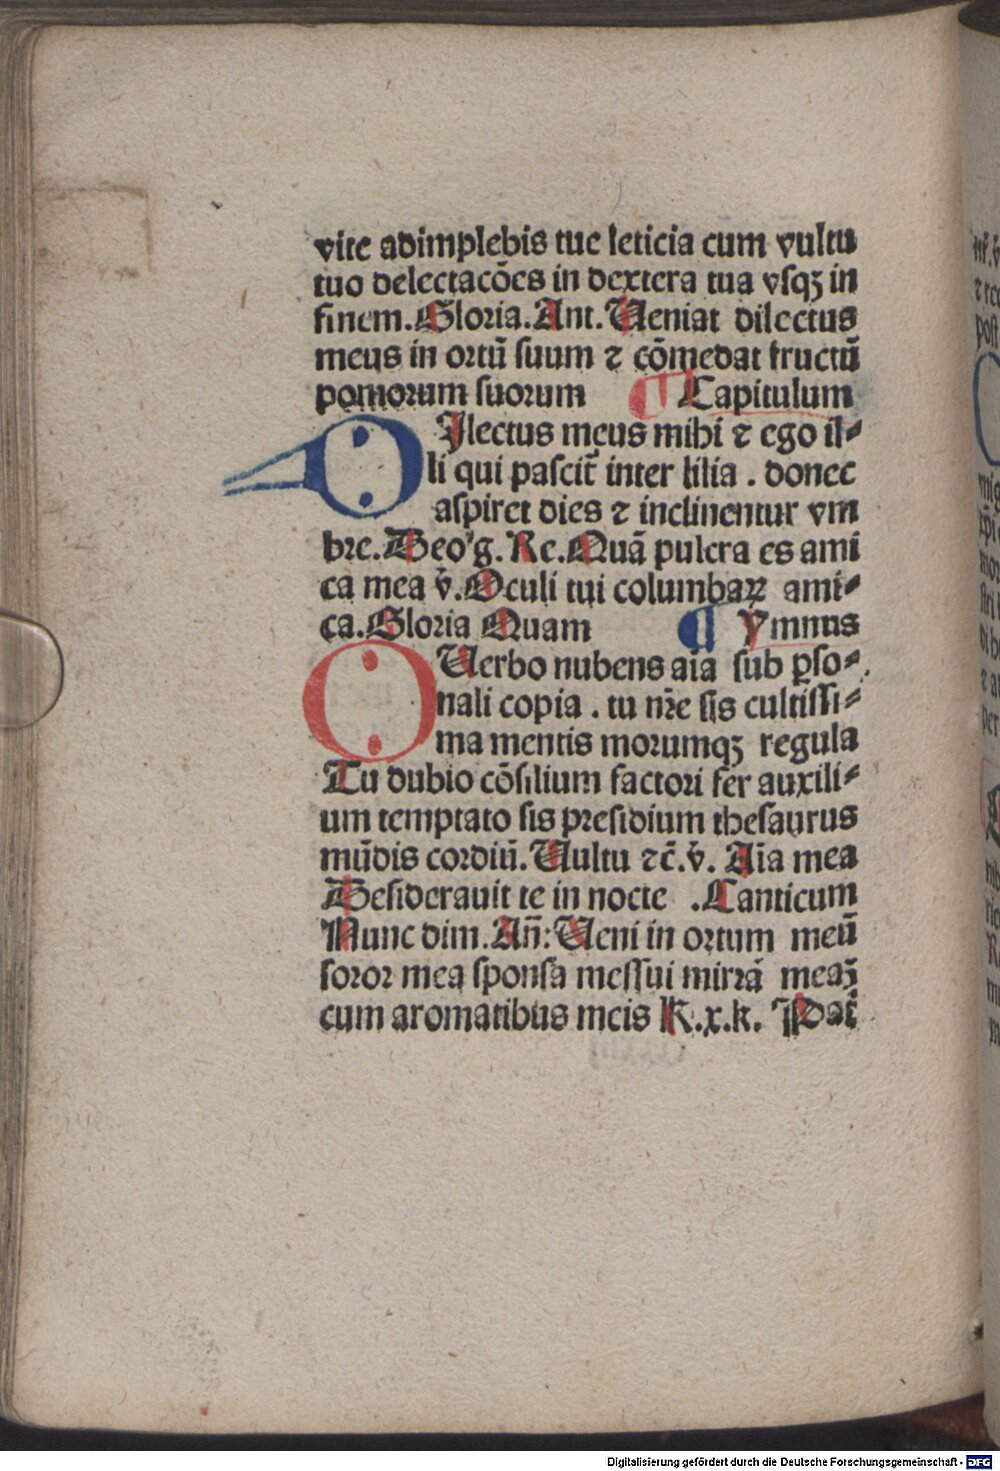 vite adimplebis tue leticia cum vultu
tuo delectacões in dextera tua vſqꝫ in
finem. Gloria. Ant. Ueniat dilectus
meus in ortū ſuum ⁊ cōmedat fructū
pomorum ſuorum ¶ Capitulum
DIlectus meus mihi ⁊ ego il⸗
li qui paſcit̄ inter lilia . donec
aſpiret dies ⁊ inclinentur vm
bre. Deo g̾. Re. Quā pulcra es ami
ca mea v̄. Oculi tui columbaꝝ ami⸗
ca. Gloria Quam ¶ Ymnus
OUerbo nubens aīa ſub ꝑſo⸗
nali copia . tu nr̄e ſis cultiſſi⸗
ma mentis morumqꝫ regula
Tu dubio cōſilium factori fer auxili⸗
um temptato ſis preſidium theſaurus
mūdis cordiū. Uultu ⁊c̄. v̄. Aīa mea
Deſiderauit te in nocte . Canticum
Nunc dim. An̄: Ueni in ortum meū
ſoror mea ſponſa meſſui mirrā meaꝫ
cum aromatibus meis K.x.k. Pat̄
Digitalisierung gefördert durch die Deutsche Forschungsgemeinschaft - DFG